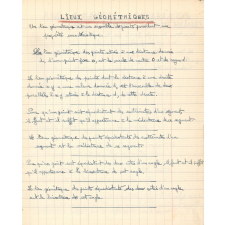 LIEUX GÉOMÉTRIQUES
Un lieu géométrique est un ensemble de points possédant une
propriété caractéristique.
Le lieu géométrique des points situés à une distance donnée
d'un point fixe O, est le cercle de centre O et de rayon d.
Le lieu géométrique des points dont la distance à une droite
donnée x y a une valeur donnée d, est l'ensemble de deux
parallèles à x y situées à la distance d, de cette droite.
Pour qu'un point soit équidistant des extrémités d'un segment
il faut et il suffit qu'il appartienne à la médiatrice de ce segment.
Le lieu géométrique des points équidistants des extrémités d'un
segment est la médiatrice de ce segment.
Pour qu'un point soit équidistant des côtés d'un angle, il faut et il suffit
qu'il appartienne à la bissectrice de cet angle.
Le lieu géométrique des points équidistants des deux côtés d'un angle
est la bissectrice de cet angle.